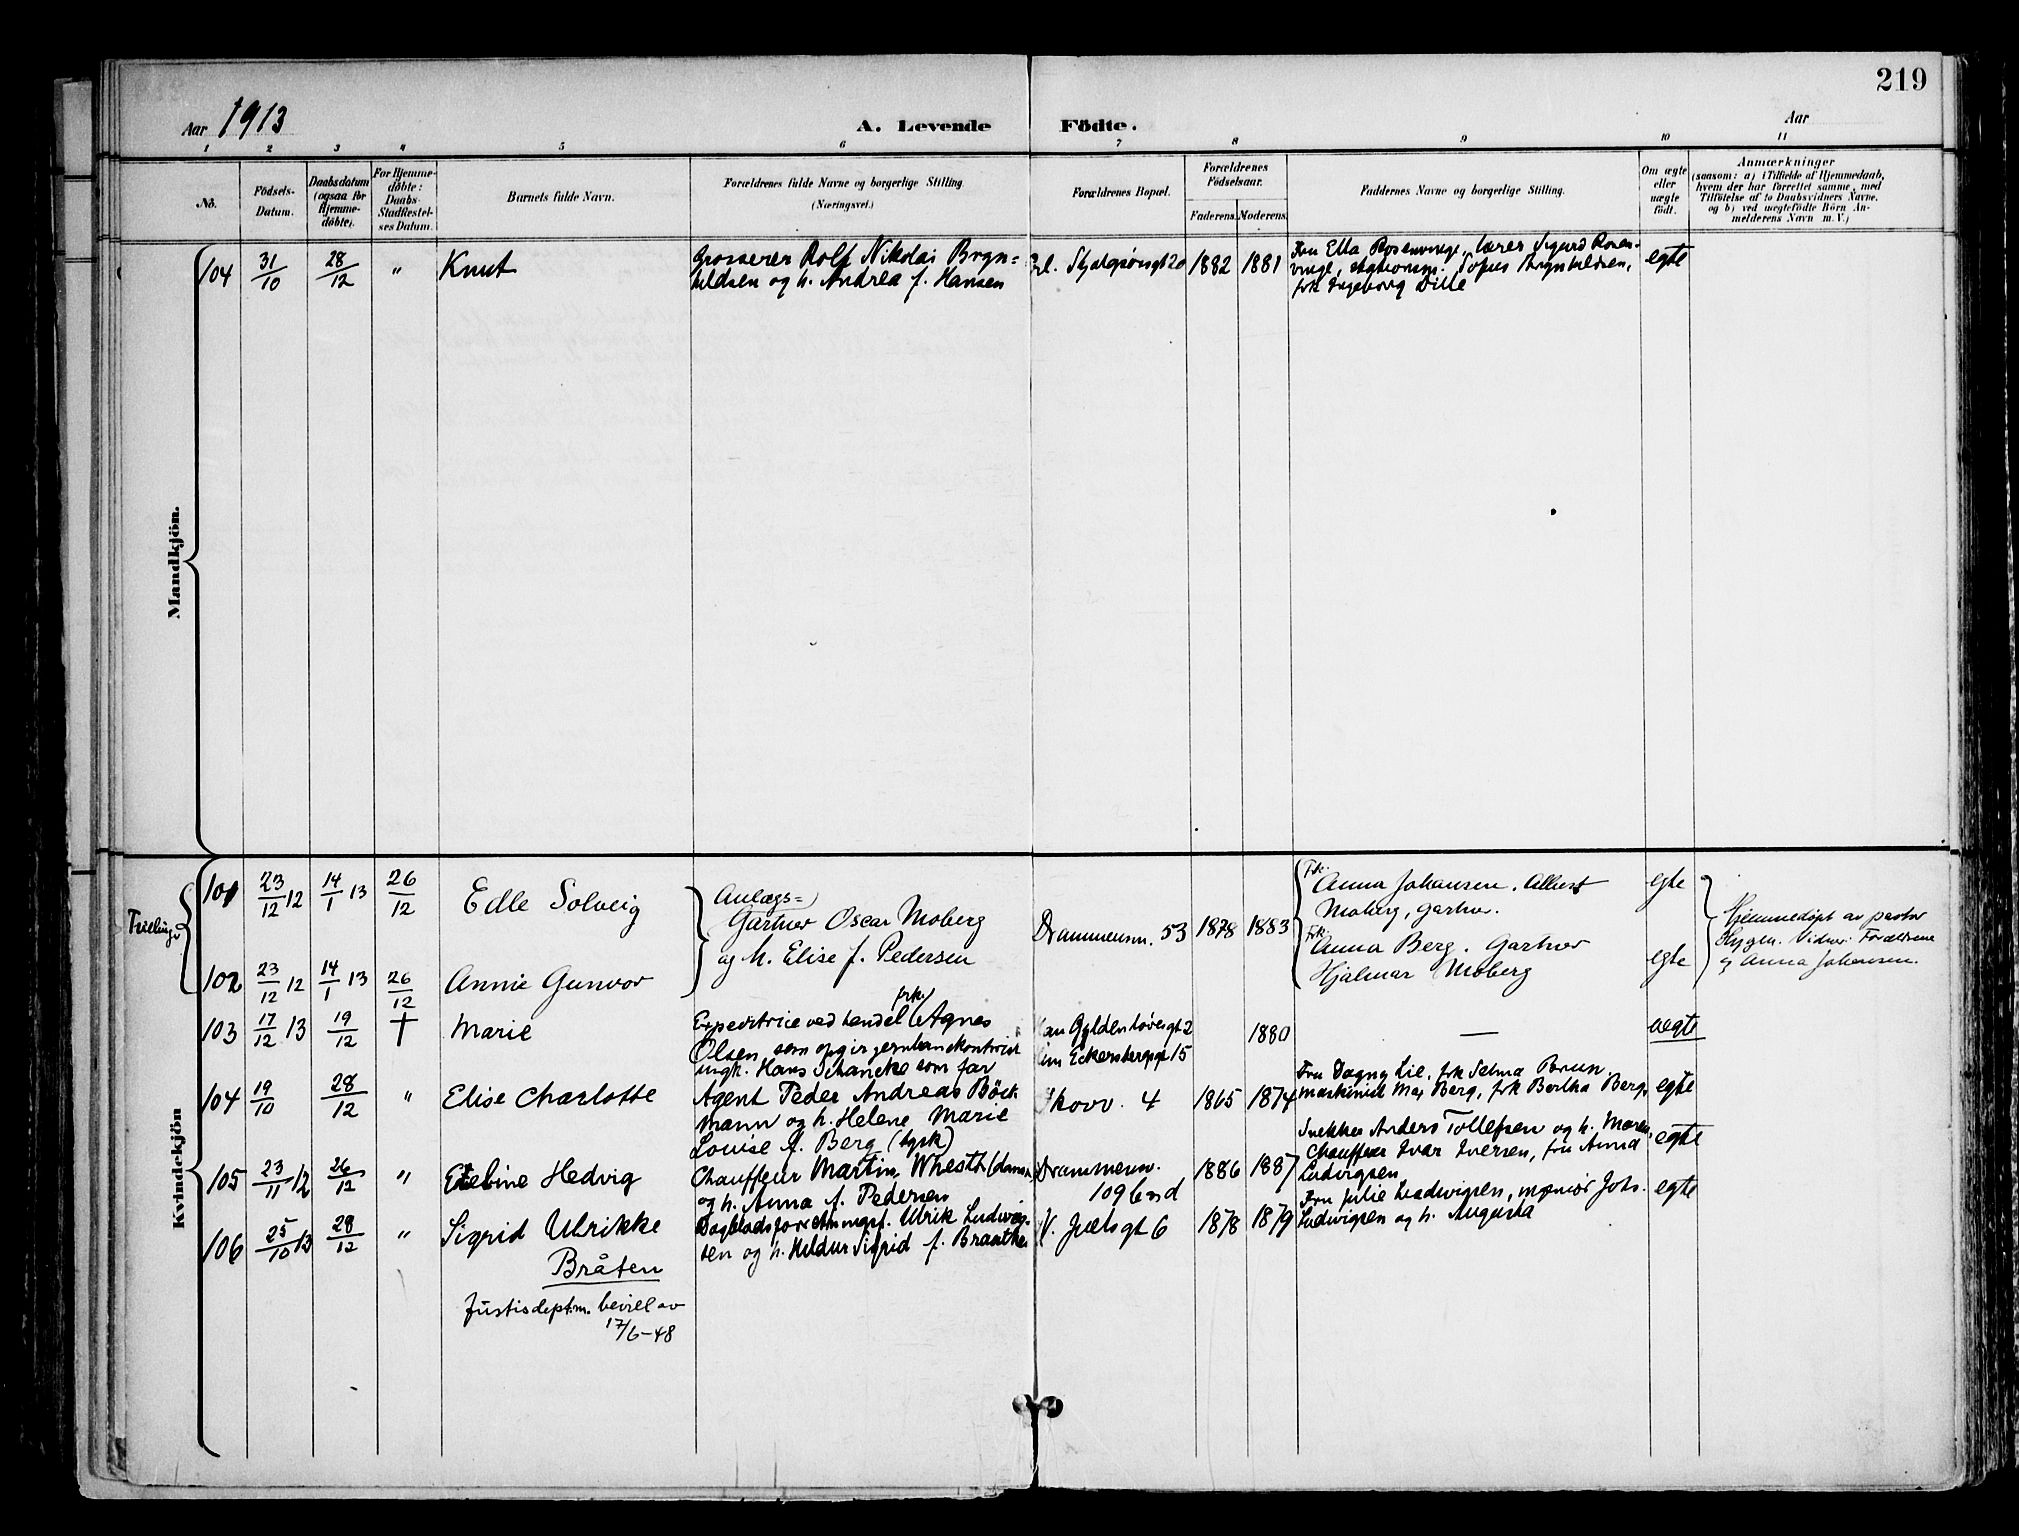 219
Aar 1913 A. Levende Födte. Aar
1 2 3 4 5 6 7 8 9 10 11
No.
Födsels-
Datum.
Daabsdatum
(ogsaa för
Hjemme-
döbte).
For Hjemme-
döbte:
Daabs-
Stadfæstel-
ses Datum.
Barnets fulde Navn.
Forældrenes fulde Navne og borgerlige Stilling.
(Næringsvei.)
Forældrenes Bopæl.
Forældrenes
Födselsaar.
Faderens. Moderens.
Faddernes Navne og borgerlige Stilling.
Om ægte
eller
uægte
födt.
Anmærkninger
(saasom: a) i Tilfælde af Hjemmedaab,
hvem der har forrettet samme, med
Tilföielse af to Daabsvidners Navne,
og b) ved uægtefödte Börn An-
melderens Navn m. V.)
Mandkjön.
104 31/10 28/12 " Knut
Grosserer Rolf Nikolai Bryn=
ildsen og h. Andrea f. Hansen
20 1882 1881
Fru Ella Rosenvinge, lærer Sigurd Rosen-
vinge, Brynildsen,
frk Ingeborg Dille
egte
Kvindekjön
Tvillinger
101 23/12 12 14/1 13 26/12 Edle Solveig
Anlægs=
Gartner Oscar Moberg
og h. Elise f. Pedersen
Drammensv. 53 1878 1883
Frk.
Anna Johansen. Albert
Moberg, gartner.
egte
Hjemmedøpt av pastor
Hygen. Vidner: Forældrene
og Anna Johansen.
102 23/12 12 14/1 13 26/12 Annie Gunvor
Frk.
Anna Berg. Gartner
Hjalmar Moberg
egte
103 17/12 13 19/12 † Marie
frk
Expeditrice ved handel Agnes
Olsen, som opgir
Hans Schancke som far
han Gyldenløvesgt 2
hun Eckersbergsgt 15
1880 — uegte
104 19/10 28/12 " Elise Charlotte
Agent Peder Andreas Böck
mann og h. Helene Marie
Louise f. Berg (tysk)
Skovv. 4 1865 1874
Fru Dagny Lie, frk Selma Brun,
maskinist Max Berg, frk Bertha Berg,
egte
105 23/11 12 26/12 " Hedvig
Chauffeur Martin Whesth (dansk)
og h. Anna f. Pedersen
Drammensv.
109 1886 1887
Snekker Anders Tollefsen og h. Maren,
Chauffeur Ivar Iversen, fru Anna
Ludvigsen
egte
106 25/10 13 28/12 " Sigrid Ulrikke
Bråten
Justisdeptm. bevill av
17/6-48
Dagbladsforretningsf. Ulrik Ludvig-
sen og h. Hildur Sigrid f.
N. Juelsgt 6 1878 1879
Fru Julie Ludvigsen, Johs.
Ludvigsen og h. Augusta
egte